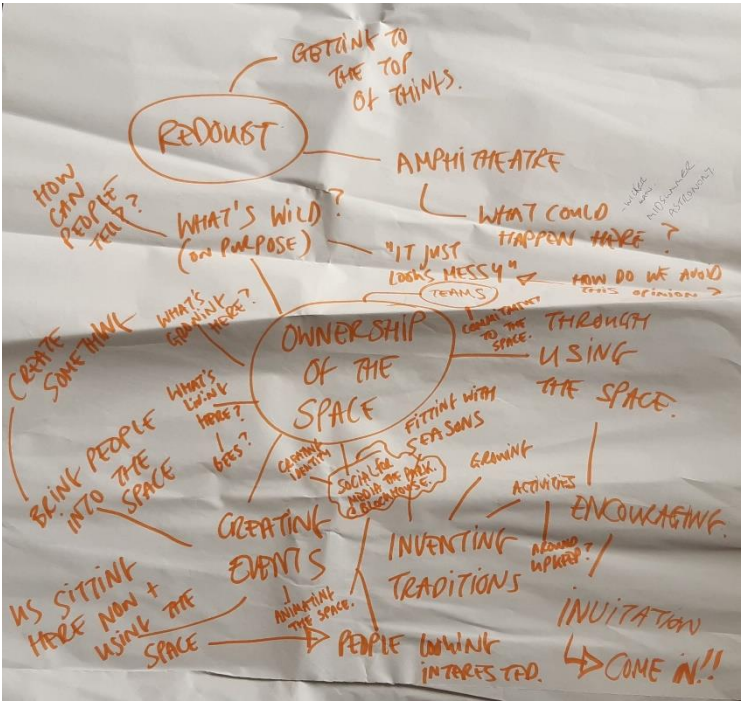 GETTING TO
THE TOP
OF THINGS.
REDOUBT
AMPHITHEATRE
WHAT COULD
HAPPEN HERE?
MIDSUMMER
ASTRONOMY
HOW
CAN
PEOPLE
TELL?
WHAT'S WILD?
(ON PURPOSE)
"IT JUST
LOOKS MESSY"
HOW DO WE AVOID
THIS OPINION?
TEAMS
COMMITMENT
TO THE
SPACE.
OWNERSHIP
OF THE
SPACE
THROUGH
USING
THE SPACE.
WHAT'S
GROWING
HERE?
CREATE
SOMETHING
WHAT'S
LIVING
HERE?
BEES?
BRING PEOPLE
INTO THE
SPACE
CREATING
IDENTITY
SOCIAL FOR
MEDIA THE PARK.
& BLOCKHOUSE.
FITTING WITH
SEASONS
GROWING
ACTIVITIES
AROUND
UPKEEP?
ENCOURAGING.
CREATING
EVENTS
INVENTING
TRADITIONS
US SITTING
HERE NOW +
USING THE
SPACE
ANIMATING
THE SPACE.
PEOPLE LOOKING
INTERESTED.
INVITATION
COME IN!!